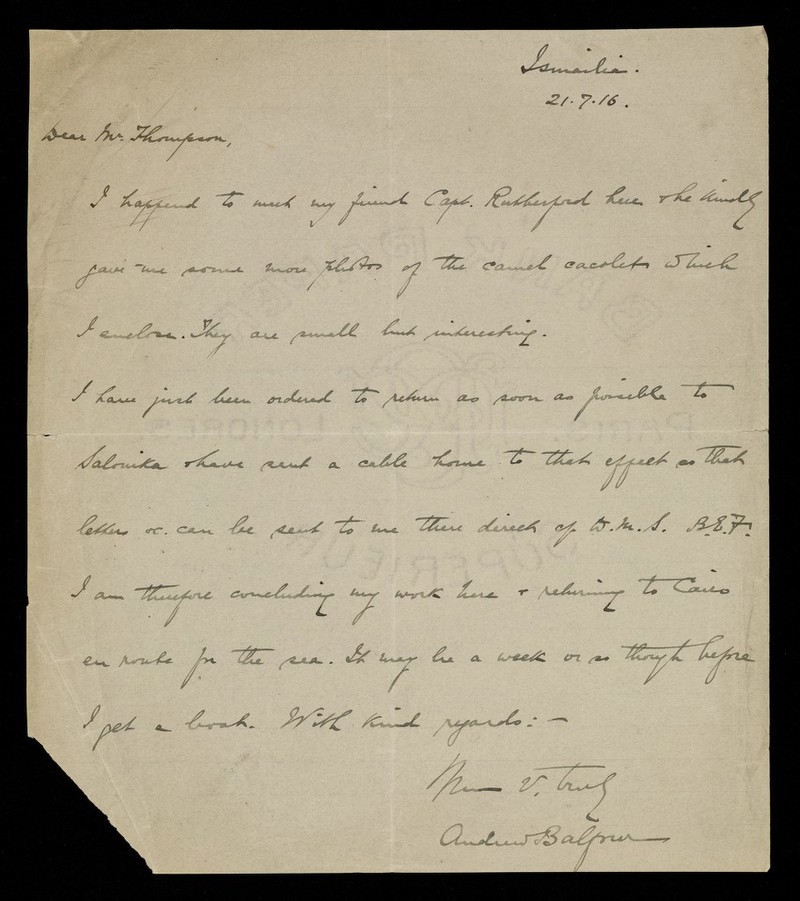 Ismailia.
21.7.16.
Dear Mr. Thompson,
I happend to meet my friend Capt. Rutherford here & he kindly
gave me some more photos of the camel cacolets which
I enclose. They are small but interesting.
I have just been ordered to return as soon as possible to
Salonika & have sent a cable home to that effect so that
letters &c. can be sent to me there direct c/o D.M.S. B.E.F.
I am therefore concluding my work here & returning to Cairo
en route for the sea. It may be a week or so though before
I get a boat. With kind regards: —
V. truly
Andrew Balfour
PARIS LONDRES
SUPERIEUR